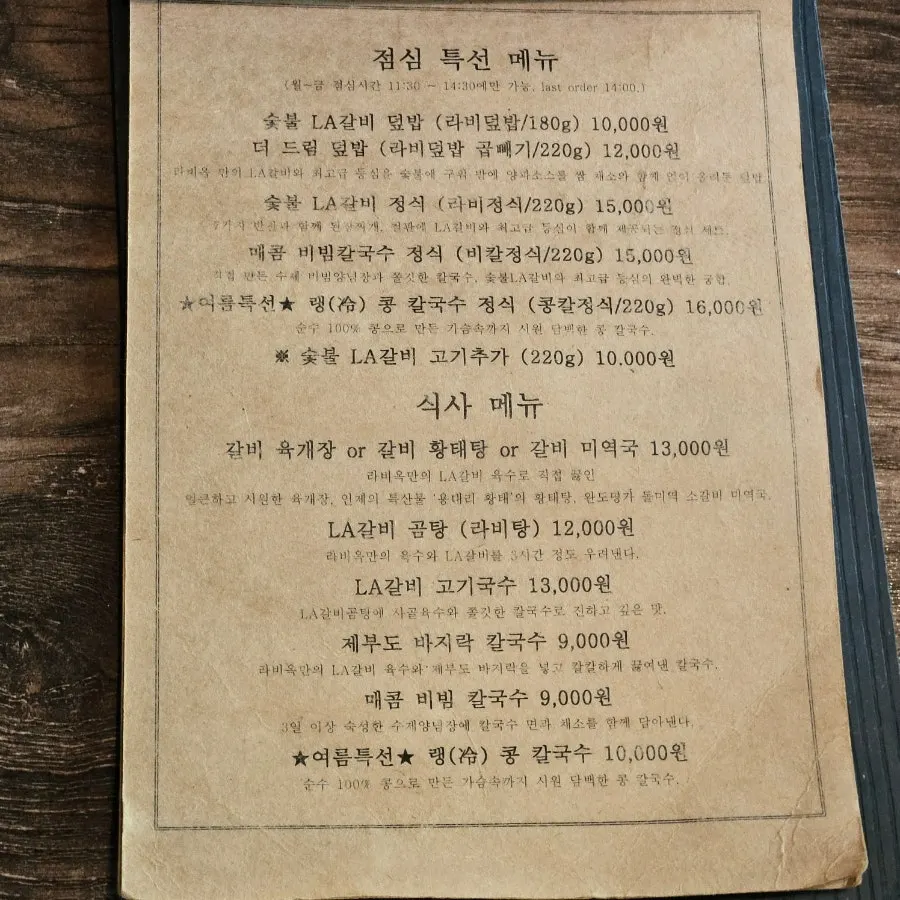 점심 특선 메뉴
(월~금 점심시간 11:30 ~ 14:30에만 가능. last order 14:00.)
숯불 LA갈비 덮밥 (라비덮밥/180g) 10,000원
더 드림 덮밥 (라비덮밥 곱빼기/220g) 12,000원
라비옥 만의 LA갈비와 최고급 등심을 숯불에 구워 밥에 양파소스를 쌈 채소와 함께 얹어 올려둔 덮밥
숯불 LA갈비 정식 (라비정식/220g) 15,000원
반찬과 함께 된장찌개, 철판에 LA갈비와 최고급 등심이 함께 제공되는 정식 세트.
매콤 비빔칼국수 정식 (비칼정식/220g) 15,000원
직접 만든 수제 비빔양념장과 쫄깃한 칼국수, 숯불LA갈비와 최고급 등심의 완벽한 궁합.
★여름특선★ 랭(冷) 콩 칼국수 정식 (콩칼정식/220g) 16,000원
순수 100% 콩으로 만든 가슴속까지 시원 담백한 콩 칼국수.
※ 숯불 LA갈비 고기추가 (220g) 10.000원
식사 메뉴
갈비 육개장 or 갈비 황태탕 or 갈비 미역국 13,000원
라비옥만의 LA갈비 육수로 직접 끓인
얼큰하고 시원한 육개장, 인제의 특산물 '용대리 황태'의 황태탕, 완도명가 돌미역 소갈비 미역국.
LA갈비 곰탕 (라비탕) 12,000원
라비옥만의 육수와 LA갈비를 3시간 정도 우려낸다.
LA갈비 고기국수 13,000원
LA갈비곰탕에 사골육수와 쫄깃한 칼국수로 진하고 깊은 맛.
제부도 바지락 칼국수 9,000원
라비옥만의 LA갈비 육수와 제부도 바지락을 넣고 칼칼하게 끓여낸 칼국수.
매콤 비빔 칼국수 9,000원
3일 이상 숙성한 수제양념장에 칼국수 면과 채소를 함께 담아낸다.
★여름특선★ 랭(冷) 콩 칼국수 10,000원
순수 100% 콩으로 만든 가슴속까지 시원 담백한 콩 칼국수.